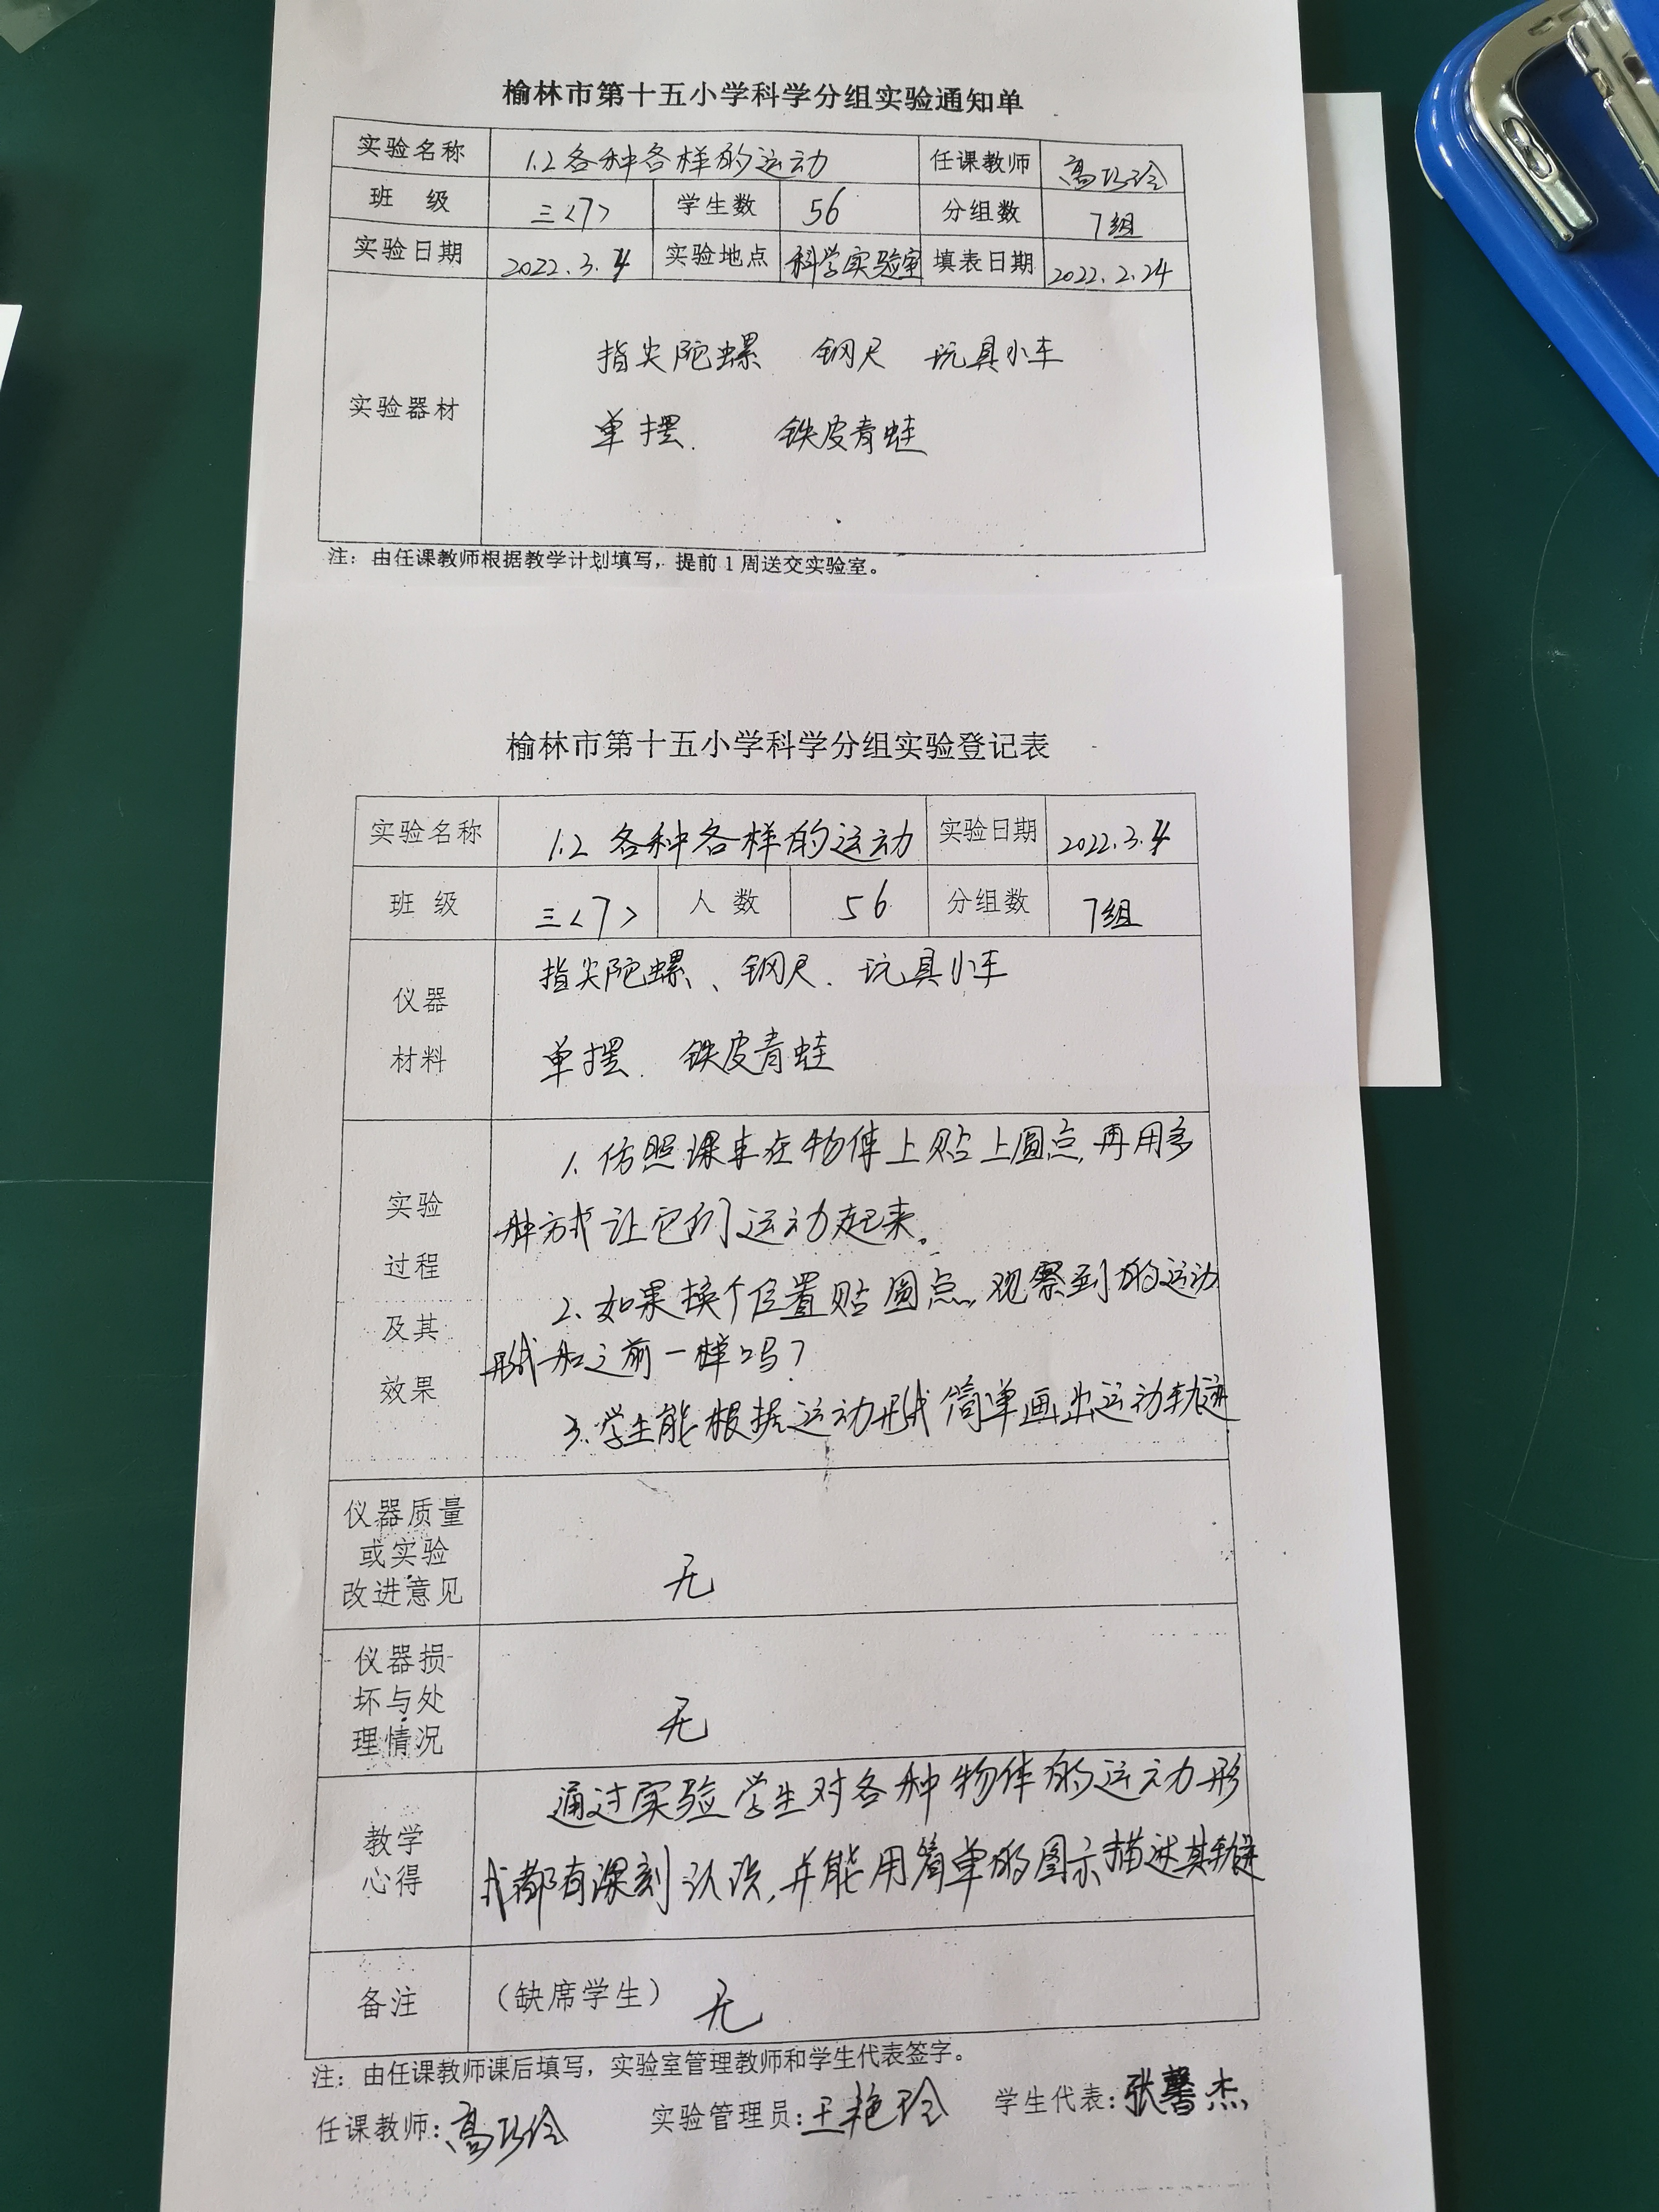 榆林市第十五小学科学分组实验通知单
实验名称 1.2各种各样的运动 任课教师 高巧玲
班 级 三<7> 学生数 56 分组数 7组
实验日期 2022.3.4 实验地点 科学实验室 填表日期 2022.2.24
实验器材
指尖陀螺 钢尺 玩具小车
单摆. 铁皮青蛙
注：由任课教师根据教学计划填写，提前1周送交实验室。
榆林市第十五小学科学分组实验登记表
实验名称 1.2 各种各样的运动 实验日期 2022.3.4
班 级 三<7> 人 数 56 分组数 7组
仪器
材料
指尖陀螺、钢尺. 玩具小车
单摆. 铁皮青蛙
实验
过程
及其
效果
1. 仿照课本在物体上贴上圆点,再用多
种方式让它们运动起来。
2. 如果换个位置贴圆点,观察到的运动
形式和之前一样吗?
3.学生能根据运动形式简单画出运动轨迹
仪器质量
或实验
改进意见
无
仪器损
坏与处
理情况
无
教学
心得
通过实验学生对各种物体的运动形
式都有深刻认识,并能用简单的图示描述其轨迹
备注 （缺席学生） 无
注：由任课教师课后填写，实验室管理教师和学生代表签字。
任课教师：高巧玲 实验管理员：王艳玲 学生代表：张馨杰